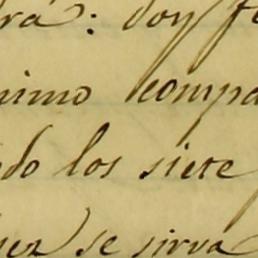 rá: doy fe
nimo compa
do los siete
uez se sirva